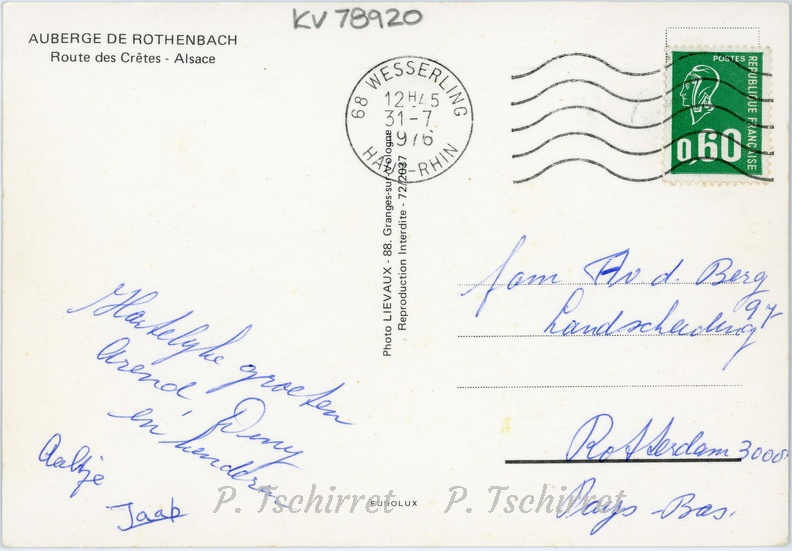 KV 78920
AUBERGE DE ROTHENBACH
Route des Crêtes - Alsace
68 WESSERLING
12H45
31-7
1976
HAUT-RHIN
POSTES
REPUBLIQUE FRANCAISE
0,60
Photo LIEVAUX - 88. Granges-sur-Vologne
Reproduction Interdite - 72/2037
fam Av d. Berg
Landscheiding 97
Rotterdam 3008
Pays-Bas.
Hartelyke groeten
Arend Deny
en kinderen
Aaltje
Jaap
P. Tschirret P. Tschirret
EUROLUX